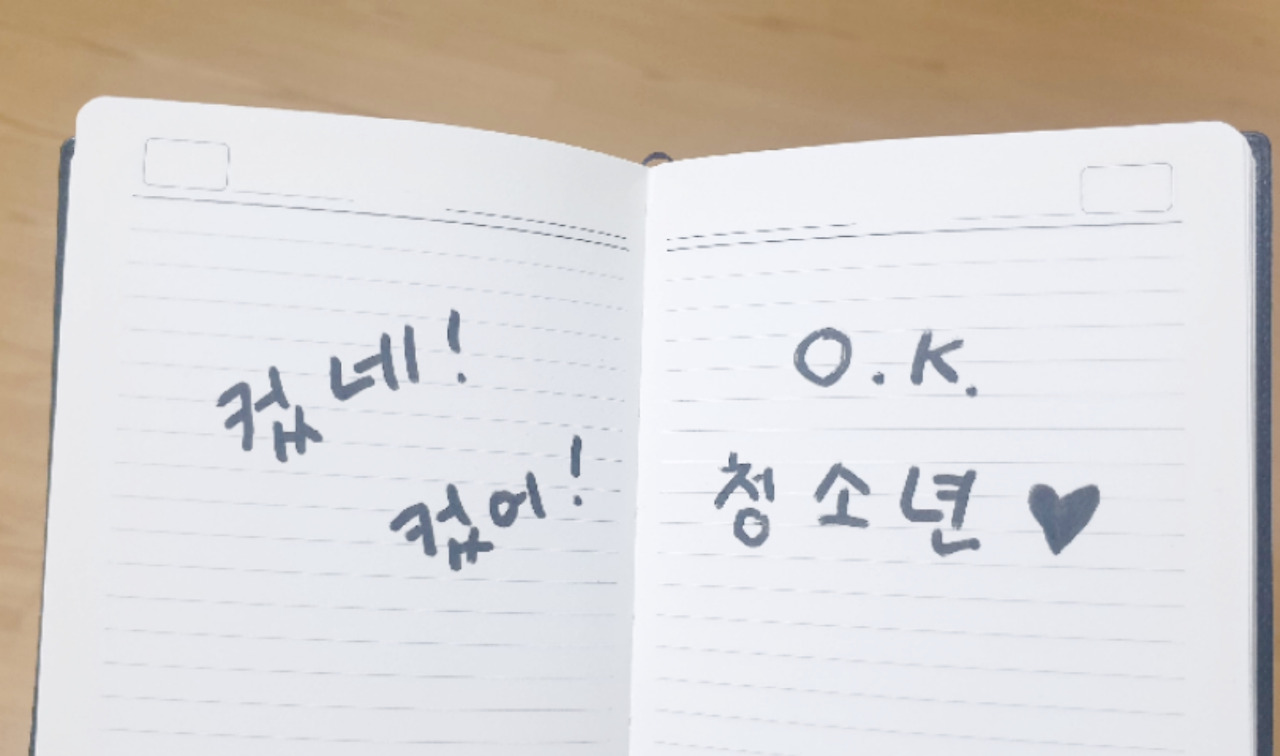 컸네!
컸어!
O.K.
청소년 ♥